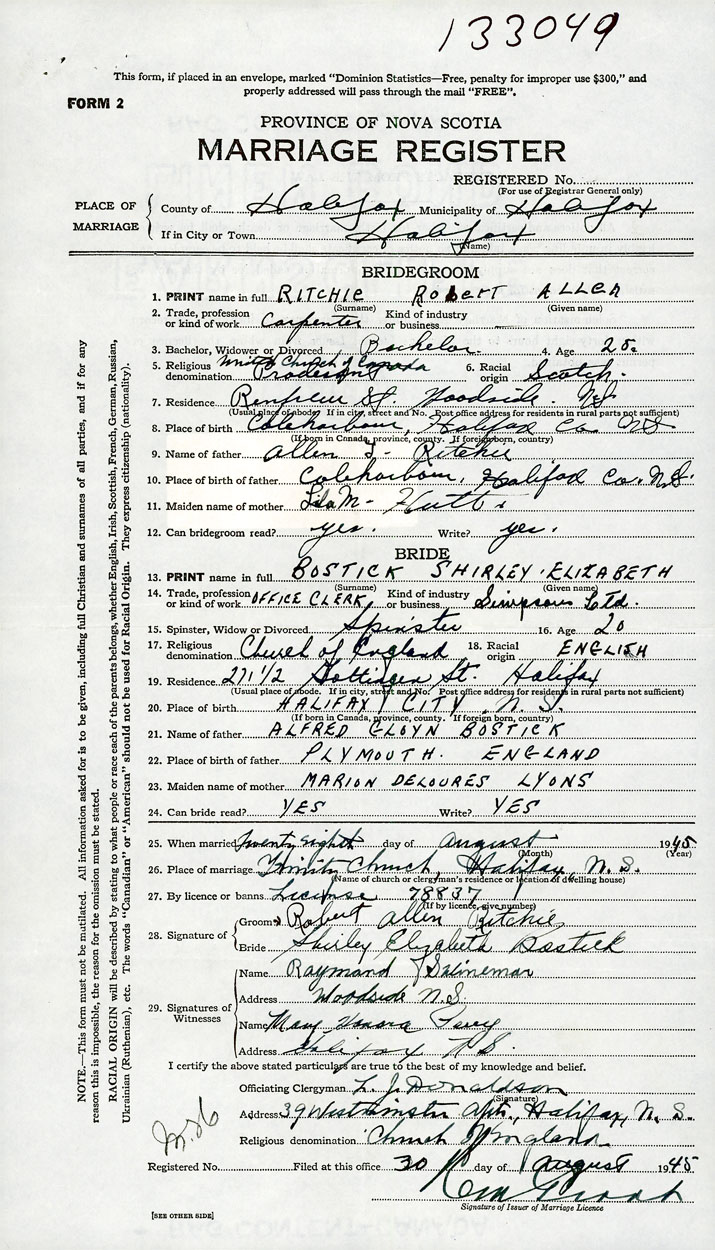 133049
This form, if placed in an envelope, marked "Dominion Statistics—Free, penalty for improper use $300," and
properly addressed will pass through the mail "FREE".
FORM 2
PROVINCE OF NOVA SCOTIA
MARRIAGE REGISTER
REGISTERED No.
(For use of Registrar General only)
PLACE OF MARRIAGE
County of Halifax Municipality of Halifax
If in City or Town Halifax
(Name)
BRIDEGROOM
1. PRINT name in full RITCHIE ROBERT ALLEN
(Surname) (Given name)
2. Trade, profession or kind of work Carpenter Kind of industry or business —
3. Bachelor, Widower or Divorced Bachelor. 4. Age 25.
5. Religious denomination United Church of Canada 6. Racial origin Scotch.
7. Residence Renfrew St. Woodside. N.S.
(Usual place of abode. If in city, street and No. Post office address for residents in rural parts not sufficient)
8. Place of birth Coleharbour, Halifax Co. N.S
(If born in Canada, province, county. If foreign born, country)
9. Name of father Allen Ritchie
10. Place of birth of father Coleharbour, Halifax Co. N.S.
11. Maiden name of mother M- Hutt
12. Can bridegroom read? yes. Write? yes.
BRIDE
13. PRINT name in full BOSTICK SHIRLEY ELIZABETH
(Surname) (Given name)
14. Trade, profession or kind of work OFFICE CLERK Kind of industry or business Simpsons Ltd.
15. Spinster, Widow or Divorced Spinster 16. Age 20
17. Religious denomination Church of England 18. Racial origin ENGLISH
19. Residence 271 1/2 Gottingen St. Halifax
(Usual place of abode. If in city, street and No. Post office address for residents in rural parts not sufficient)
20. Place of birth HALIFAX CITY N. S.
(If born in Canada, province, county. If foreign born, country)
21. Name of father ALFRED GLOYN BOSTICK
22. Place of birth of father PLYMOUTH. ENGLAND
23. Maiden name of mother MARION DELOURES LYONS
24. Can bride read? YES Write? YES
25. When married Twenty eighth day of August 1945
(Month) (Year)
26. Place of marriage Trinity Church, Halifax, N. S.
(Name of church or clergyman's residence or location of dwelling house)
27. By licence or banns License 78837
(If by licence, give number)
28. Signature of
Groom Robert Allen Ritchie
Bride Shirley Elizabeth Bostick
29. Signatures of Witnesses
Name Raymond
Address Woodside N.S.
Name Mary
Address Halifax N.S.
I certify the above stated particulars are true to the best of my knowledge and belief.
Officiating Clergyman L. J. Donaldson
(Signature)
Address 39 Westminster Apts., Halifax, N. S.
Religious denomination Church of England
Registered No. Filed at this office 30 day of August 1945
Signature of Issuer of Marriage Licence
[SEE OTHER SIDE]
NOTE.—This form must not be mutilated. All information asked for is to be given, including full Christian and surnames of all parties, and if for any
reason this is impossible, the reason for the omission must be stated.
RACIAL ORIGIN will be described by stating to what people or race each of the parents belongs, whether English, Irish, Scottish, French, German, Russian,
Ukrainian (Ruthenian), etc. The words "Canadian" or "American" should not be used for Racial Origin. They express citizenship (nationality).